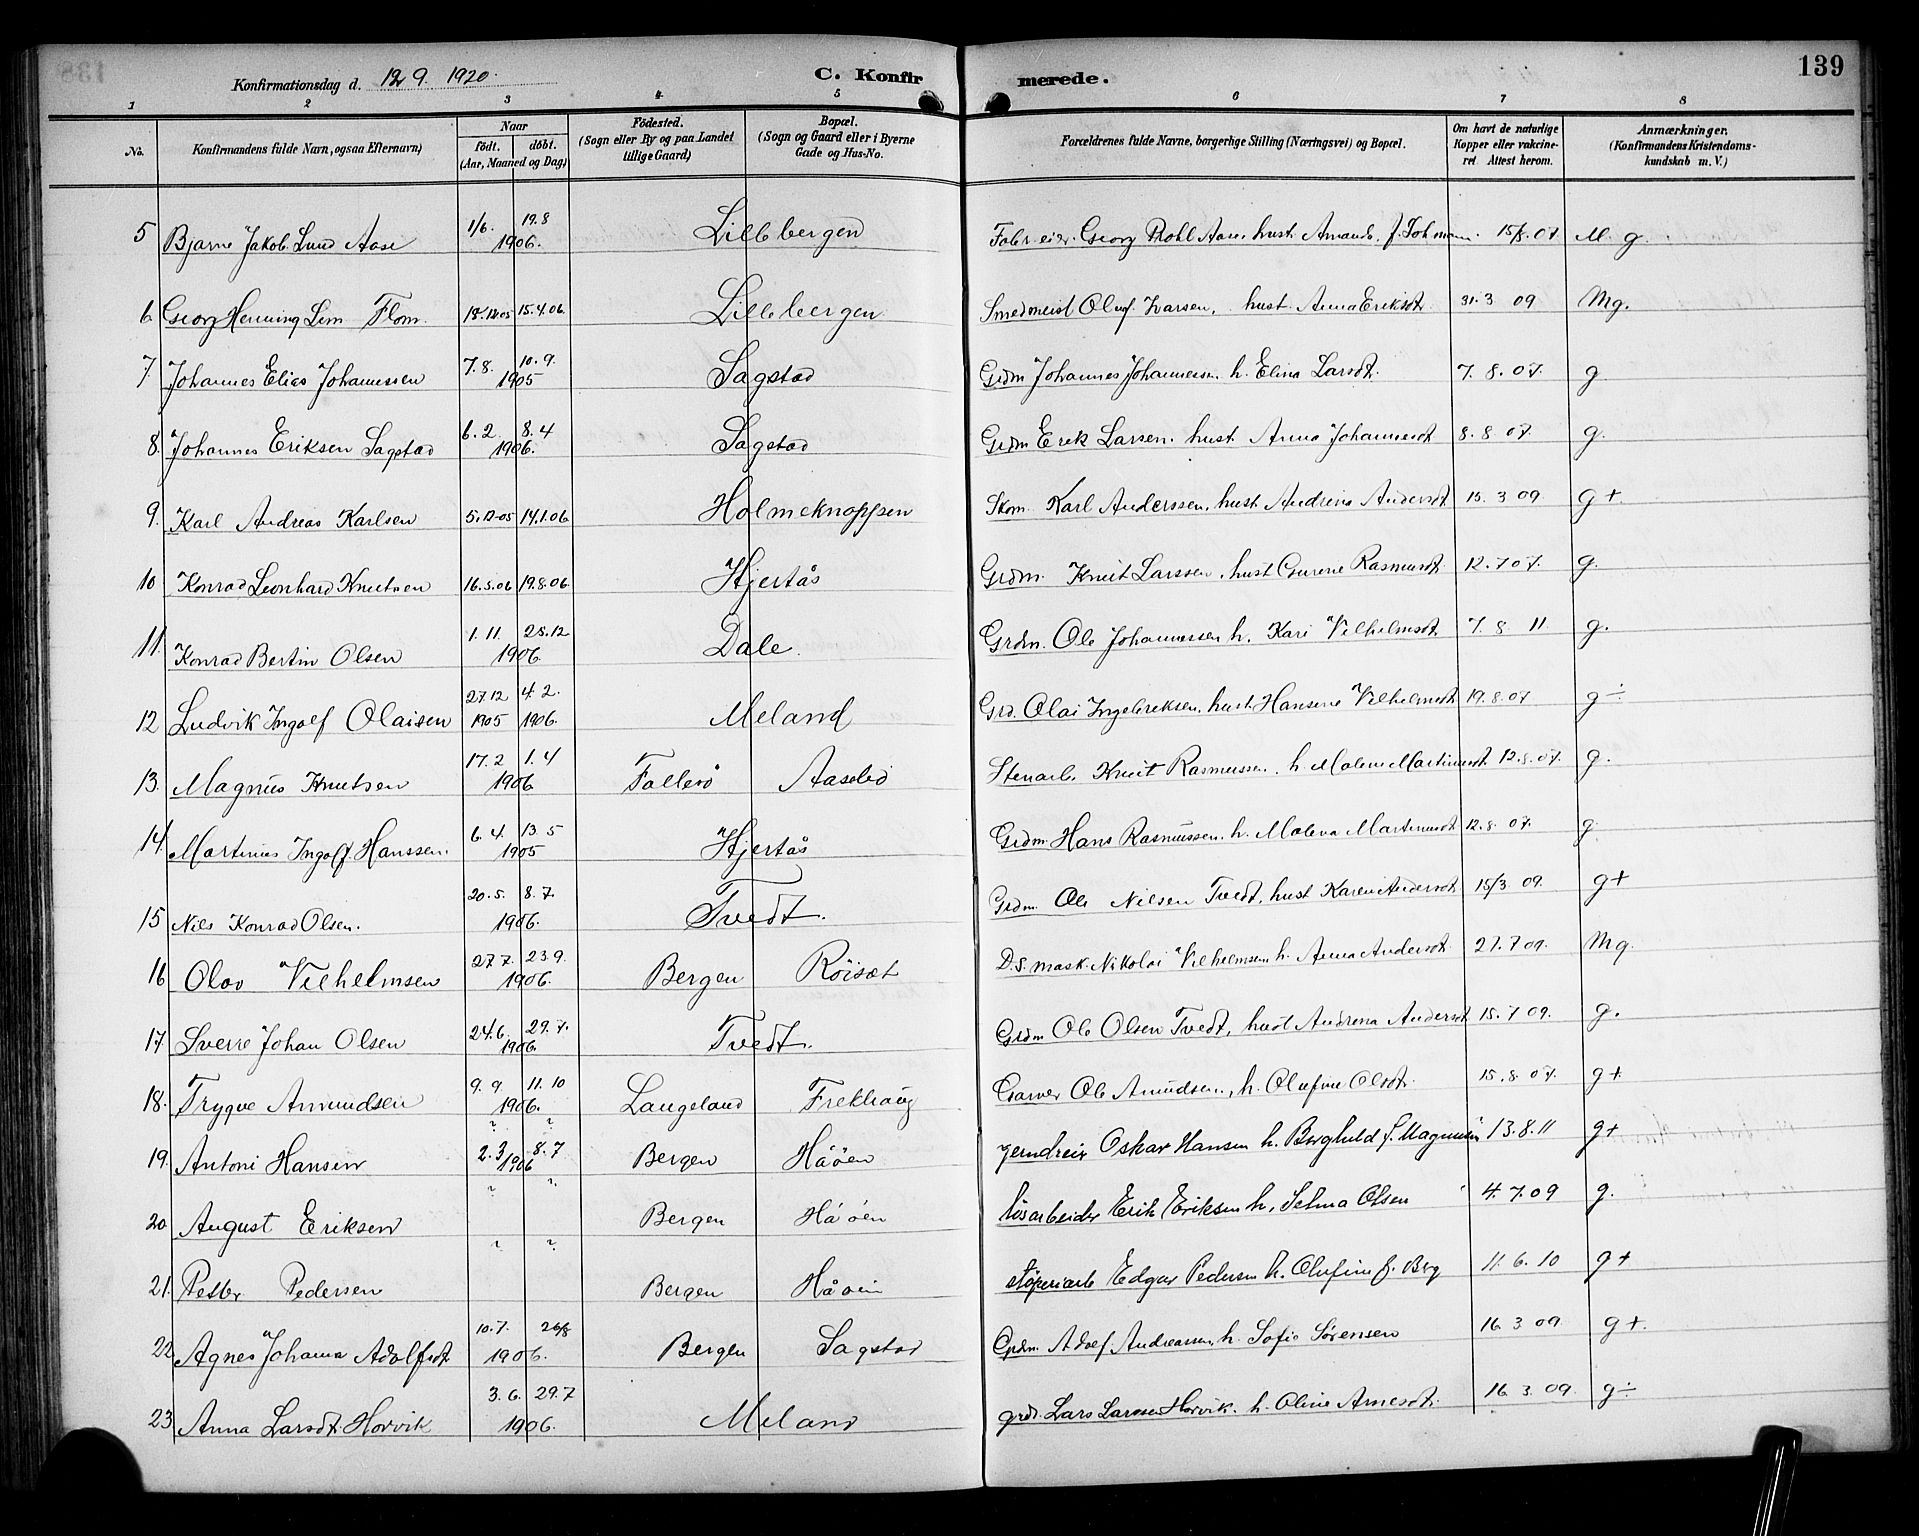 139
Konfirmationsdag d. 12 9. 1920.
C. Konfirmerede.
1 2 3 4 5 6 7 8
No. Konfirmandens fulde Navn, ogsaa Efternavn)
Naar
födt. döbt.
(Aar, Maaned og Dag)
Födested.
(Sogn eller By og paa Landet
tillige Gaard)
Bopæl.
(Sogn og Gaard eller i Byerne
Gade og Hus-No.
Forældrenes fulde Navne, borgerlige Stilling (Næringsvei) og Bopæl.
Om havt de naturlige
Kopper eller vakcine-
ret Attest herom.
Anmærkninger.
(Konfirmandens Kristendoms-
kundskab m. V.)
5 Bjarne Jakob Lund Aase 1/6. 19.8 1906. Lillebergen Georg Aase, hust. Amanda f. 15/8. 07 M. g.
6 Georg Henning Lem Flom. 15.4.06. Lillebergen Smedmest Oluf Ivarsen, hust. Anna Eriksdt. 31.3 09 Mg.
7 Johannes Elias Johannessen 7.8. 10.9. 1905 Sagstad Grdm Johannes Johannessen h. Elina Larsdt. 7.8.07. g.
8. Johannes Eriksen Sagstad 6.2 8.4 1906. Sagstad Grdm Erik Larsen. hust. Anna Johannesdt 8.8 07. g.
9. Karl Andreas Karlsen 5.12.05 14.1.06. Holmeknappen Skom. Karl Anderssen, hust. Andrina Andersdt 15.3 09. g+
10 Konrad Leonhard Knutsen 16.5.06 19.8.06. Hjertås Grdm. Knut Larssen, hust Rasmusdt. 12.7 07. g.
11. Konrad Bertin Olsen 1.11. 25.12 1906. Dale. Grdm. Ole Johannessen h. Kari Vilhelmsdt. 7.8 11 g.
12 Ludvik Ingolf Olaisen 27.12 1905 4.2. 1906. Meland Grd. Olai Ingebriksen, hust. Hansine Vilhelmsdt 19.8.07 g÷
13. Magnus Knutsen 17.2 1.4 1906 Fallerö Aasebö Stenarb. Knut Rasmussen. h Malene Martinusdt 12.8.07. g.
14. Martinus Ingolf Hanssen. 6.4. 13.5 1905 Hjertås Grdm. Hans Rasmussen. h. Malena Martinusdt 12.8. 07. g.
15 Nils Konrad Olsen. 20.5. 8.7. 1906 Tvedt. Grdm. Ole Nilsen Tvedt, hust Karen Andersdt. 15/3 09. g+
16 Olav Vilhelmsen 27.7. 23.9. 1906. Bergen Röisæt D.S. mask. Nikolai Vilhelmsen h. Anna Andersdt. 27.7 09. Mg.
17. Sverre Johan Olsen 24.6. 29.7. 1906. Tvedt. Grdm Ole Olsen Tvedt, hust Andrena Andersdt 15.7 09. g.
18. Trygve Amundsen 9.9. 11.10 1906. Langeland Frekhaug Garver Ole Amundsen, h. Olufine Olsdt. 15.8.07. g+.
19. Antoni Hansen ? ? 2.3 8.7 1906 Bergen Håöen jerndreier Oskar Hansen h. Borghild f. Magnussen 13.8.11 g+
20. August Eriksen ? ? Bergen Håöen lösarbeider Erik Eriksen h. Selma Olsen 4.7.09 g.
21. Petter Pedersen ? ? Bergen Håöen stöperiarb Edgar Pedersen h. Olufine f. Berg 11.6.10 g+
22 Agnes Johanna Adolfsdt 10.7. 26/8 1906. Bergen Sagstad Grdm. Adolf Andreassen h. Sofie Sörensen 16.3 09 g+.
23. Anna Larsdt. Horvik 3.6. 29.7 1906. Meland grd. Lars Larssen Horvik. h. Oline Arnesdt. 16.3.09. g÷